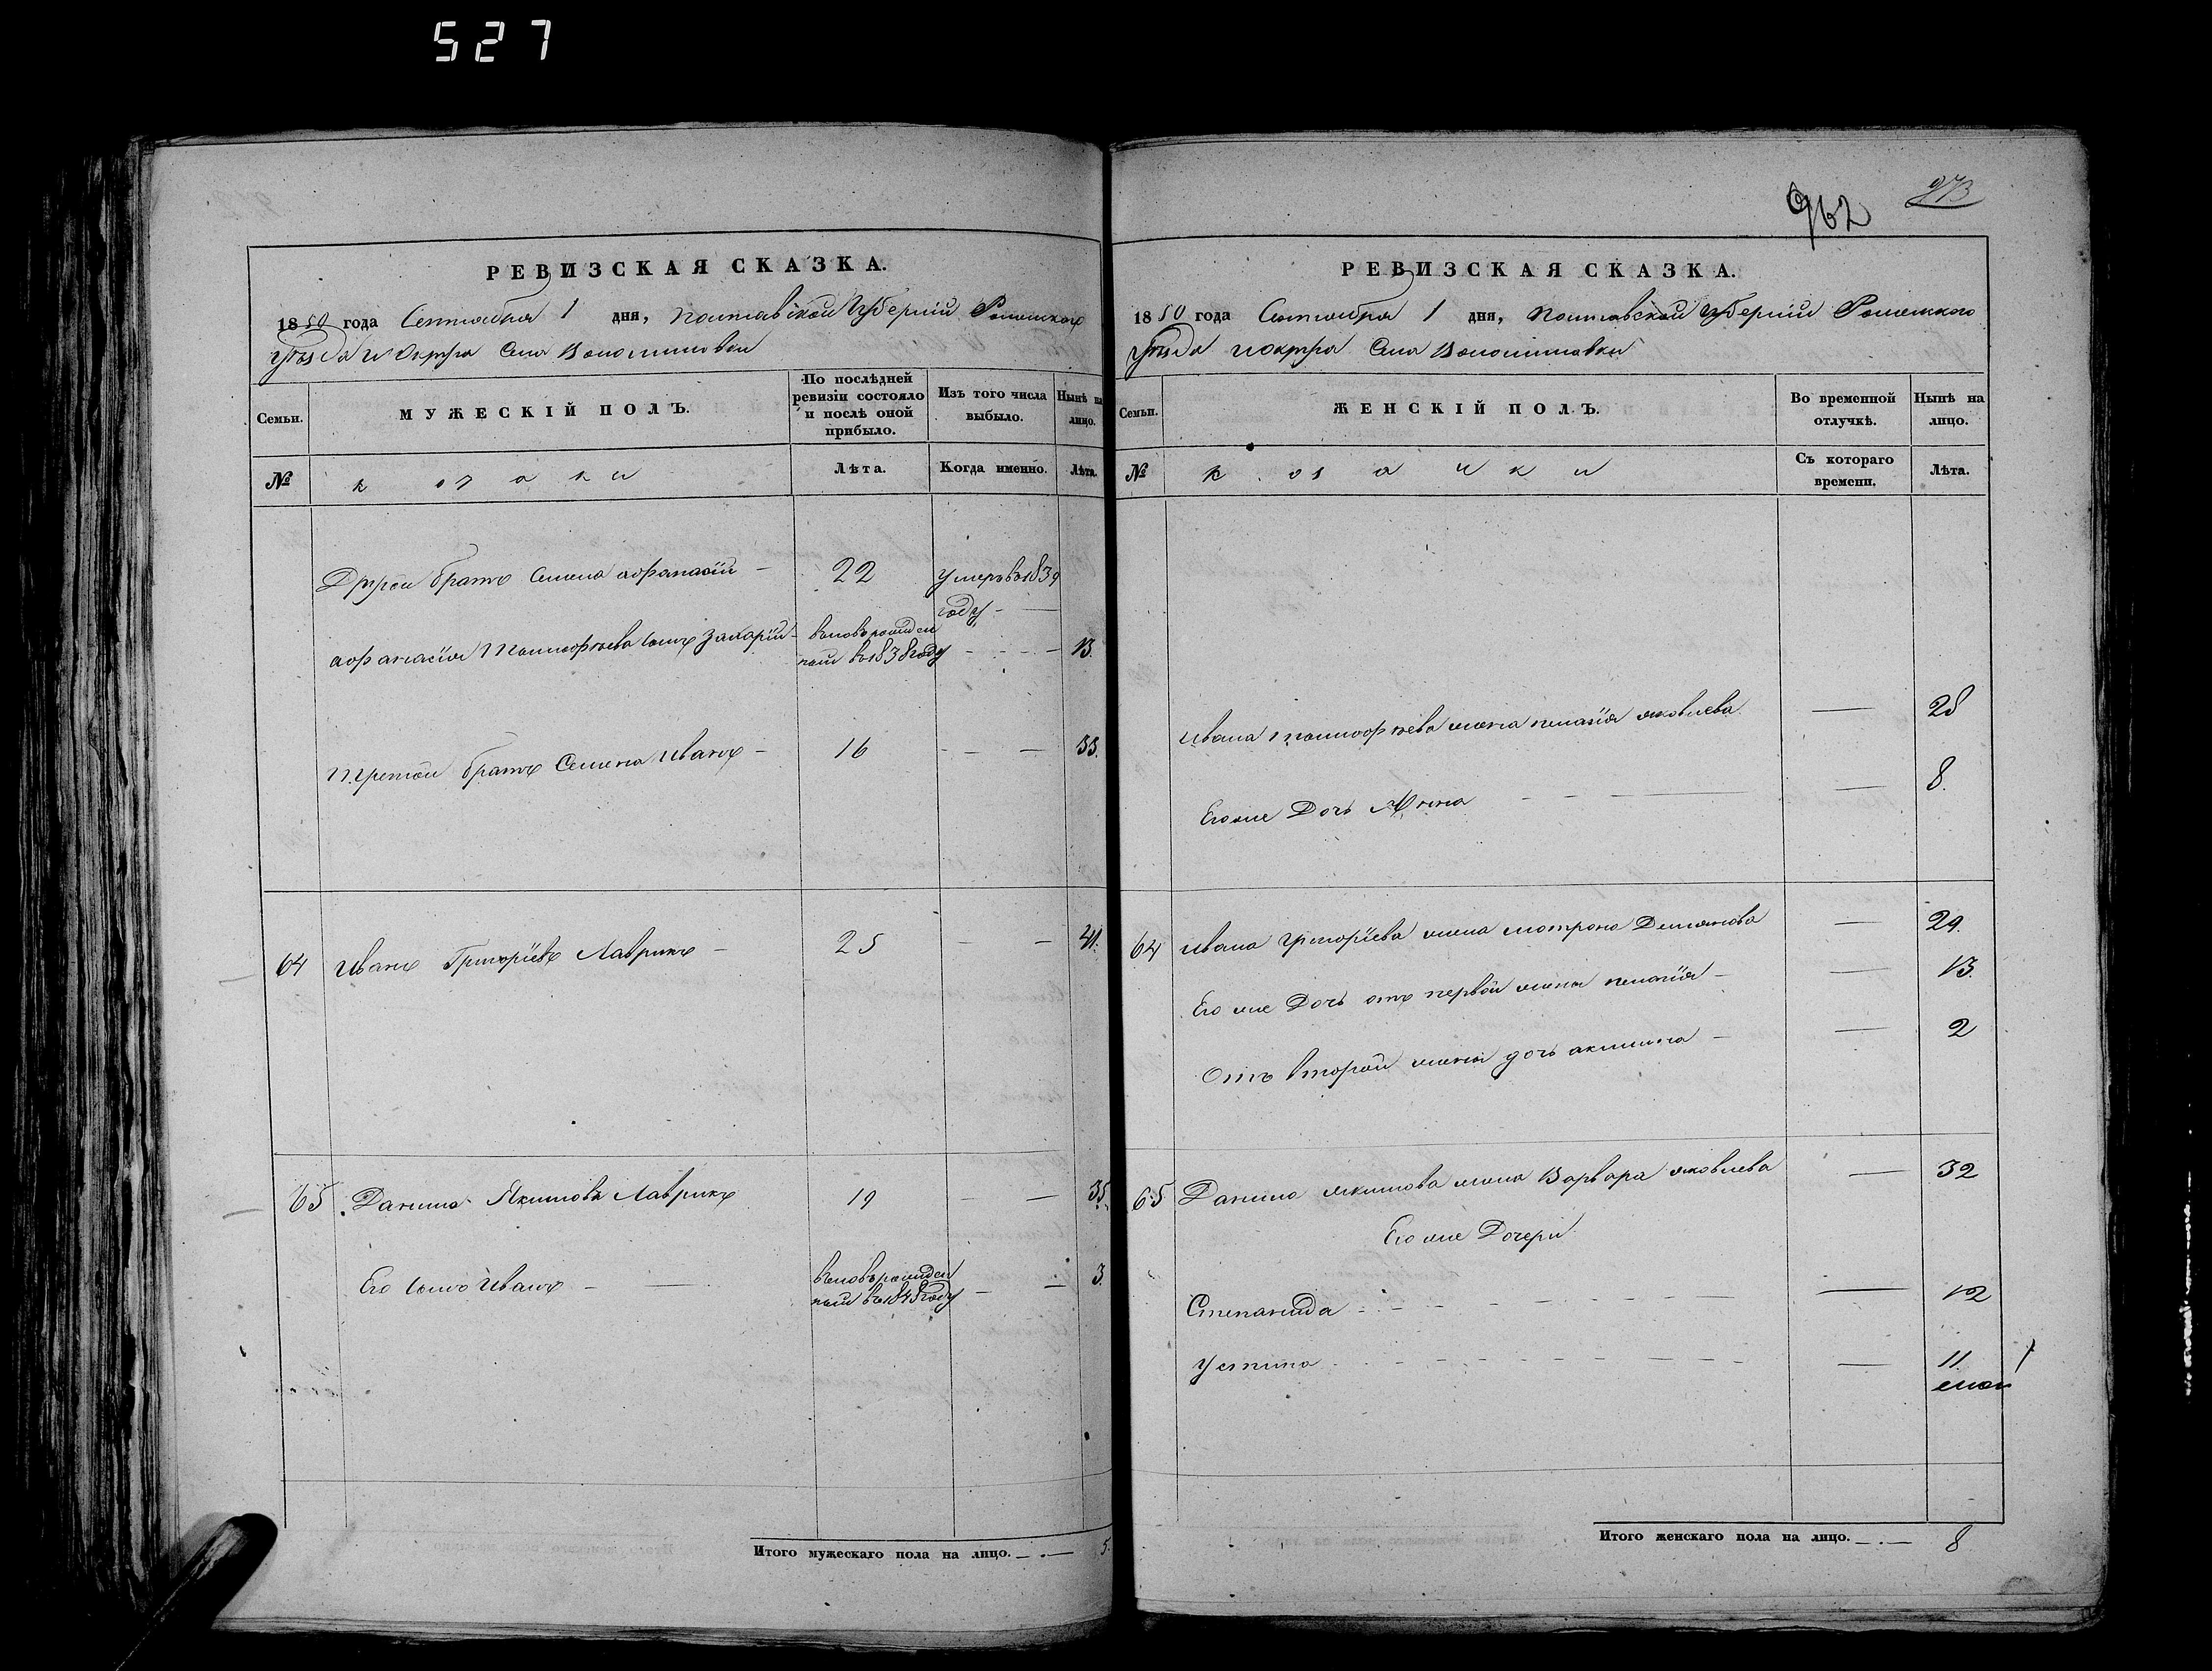 527
962
273
РЕВИЗСКАЯ СКАЗКА.
1850 года Сентября 1 дня, Полтавской Губернии Роменского
уѣзда и округа Села Волошиновки
Семьи. МУЖЕСКІЙ ПОЛЪ. По послѣдней ревизіи состояло и послѣ оной прибыло. Изъ того числа выбыло. Нынѣ на лицо.
№ козаки Лѣта. Когда именно. Лѣта.
Другой братъ Семена афанасій 22 умеръ в 1839
году
афанасія сынъ Захарій вновьрожден
ный в 1838 году 13.
Третій братъ Семена Иванъ 16 33.
64 Иванъ Григоріевъ Лаврикъ 25 41.
65 Данило Якимовъ Лаврикъ 19 35.
Его сынъ Иванъ вновьрожден 3.
ный в 1848 году
Итого мужескаго пола на лицо. 5.
РЕВИЗСКАЯ СКАЗКА.
1850 года Сентября 1 дня, Полтавской Губерніи Роменского
уѣзда и округа Села Волошиновки
Семьи. ЖЕНСКІЙ ПОЛЪ. Во временной отлучкѣ. Нынѣ на лицо.
№ козачки Съ котораго времени. Лѣта.
Ивана жена пелагія яковлева 28
Его же Дочь Анна 8.
64 Ивана григоріева жена мотрона Демянова 29.
Его же Дочь отъ первой жены пелагія 13.
Отъ второй жены дочь акилина 2
65 Данила якимова жена Варвара яковлева 32
Его же Дочери
Степанида 12
Устина 11.
Итого женскаго пола на лицо. 8